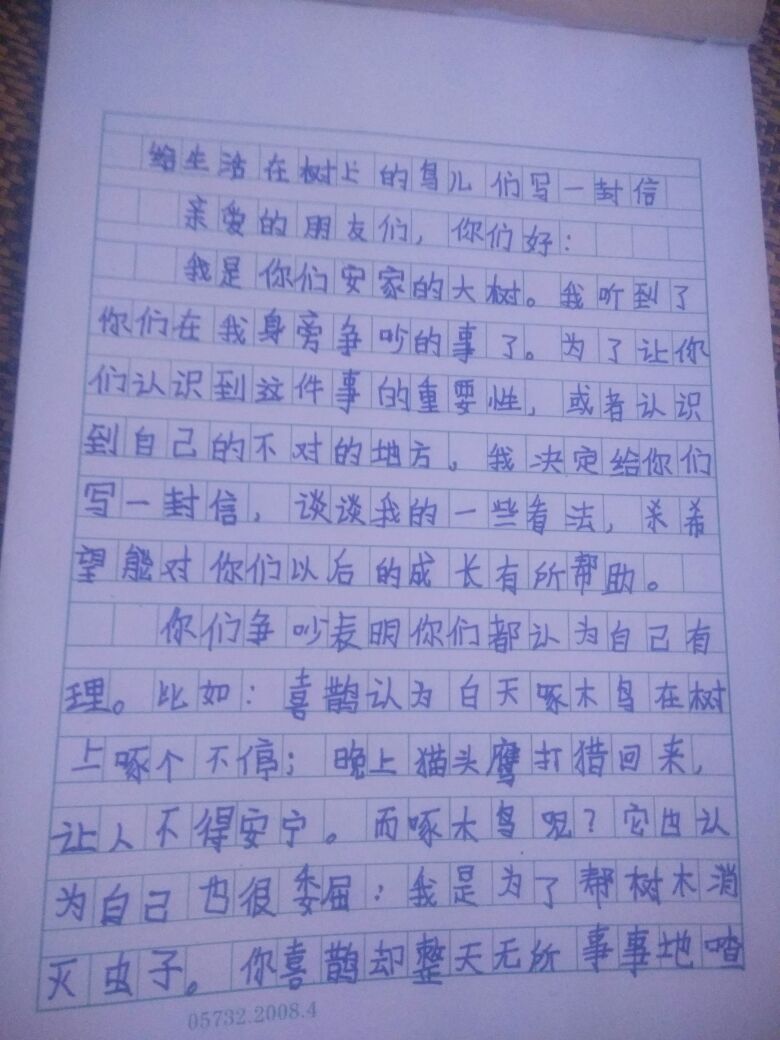 给生活在树上的鸟儿们写一封信
亲爱的朋友们，你们好：
我是你们安家的大树。我听到了
你们在我身旁争吵的事了。为了让你
们认识到这件事的重要性，或者认识
到自己的不对的地方，我决定给你们
写一封信，谈谈我的一些看法，希
望能对你们以后的成长有所帮助。
你们争吵表明你们都认为自己有
理。比如：喜鹊认为白天啄木鸟在树
上啄个不停；晚上猫头鹰打猎回来，
让人不得安宁。而啄木鸟呢？它也认
为自己也很委屈：我是为了帮树木消
灭虫子。你喜鹊却整天无所事事地喳
05732.2008.4